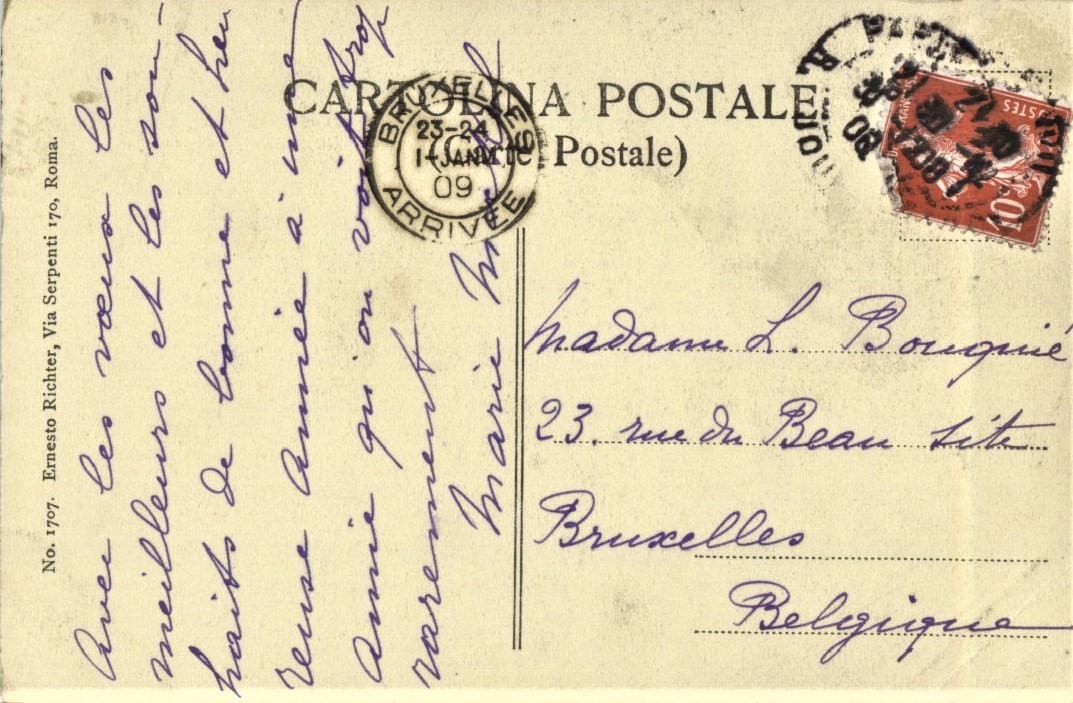 CARTOLINA POSTALE
(Carte Postale)
No. 1707. Ernesto Richter, Via Serpenti 170, Roma.
Avec les vœux les
meilleurs et les sou-
haits de bonne et heu
reuse Année à une
Amie qu'on voit trop
rarement
Marie
BRUXELLES
23-24
1-JANV
09
ARRIVÉE
POSTES
10
Madame L. Bouquié
23. rue du Beau site
Bruxelles
Belgique